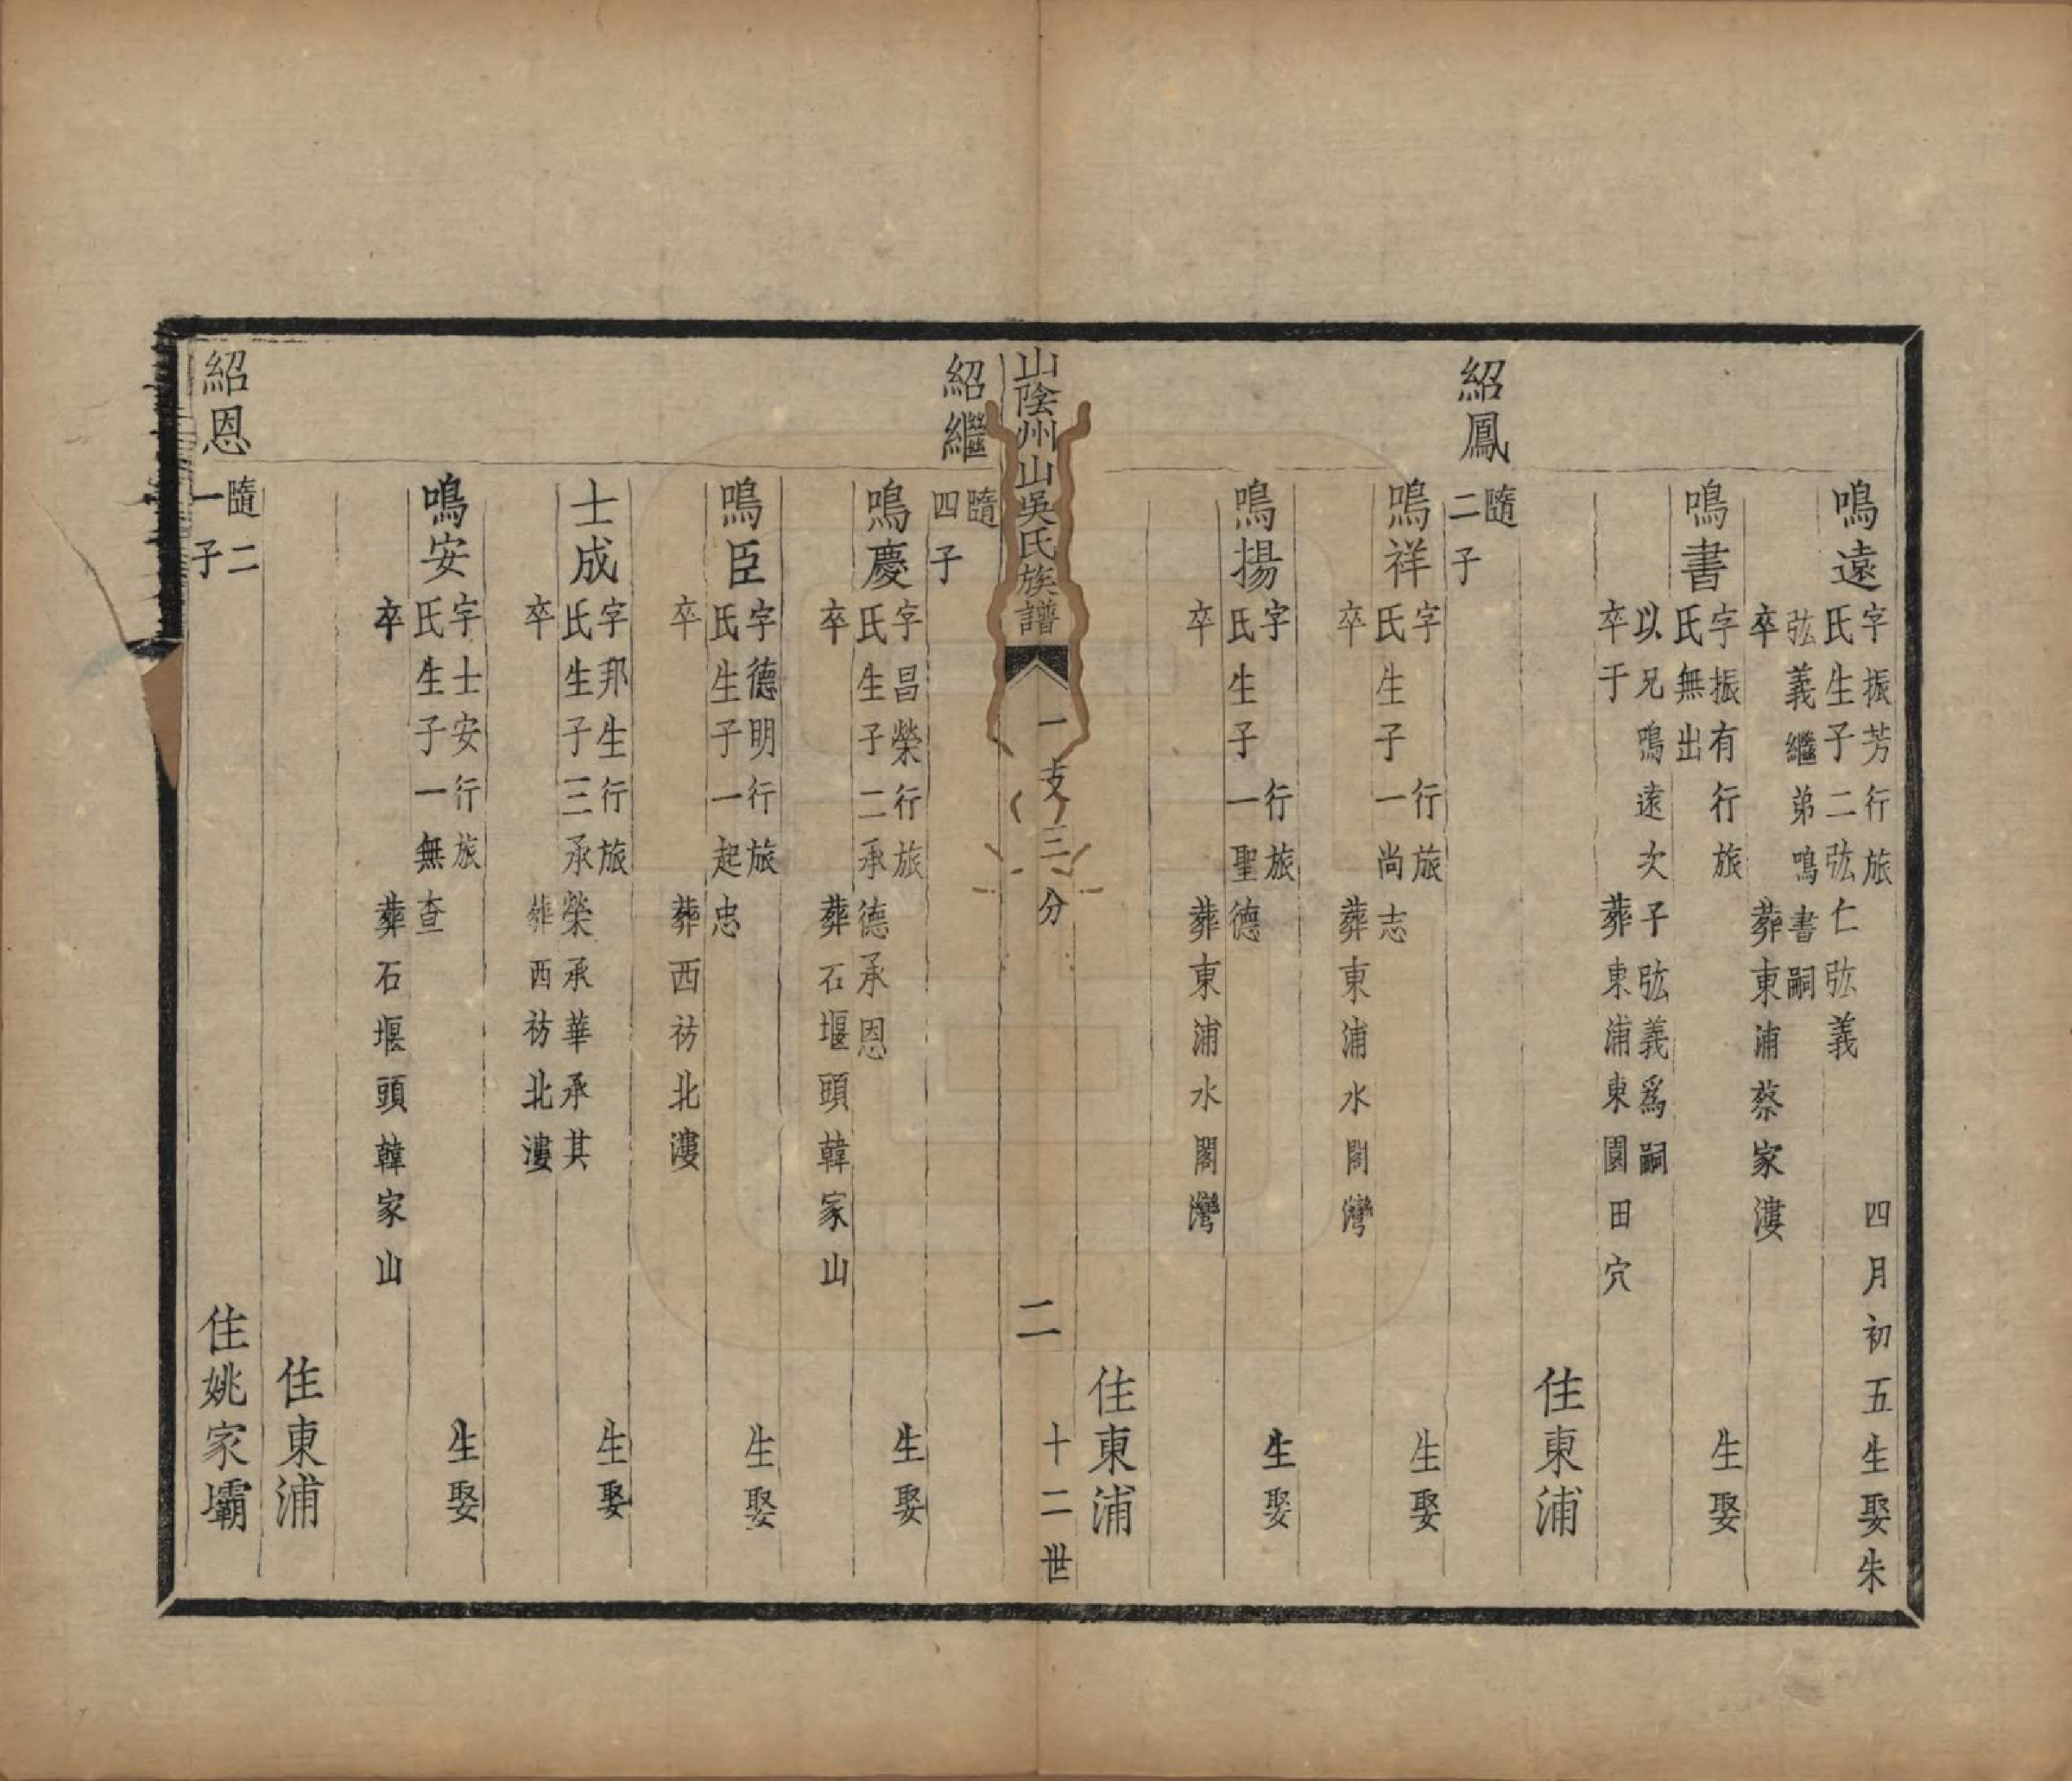 鳴遠
字振芳行旅 四月初五生娶朱
氏生子二弦仁弦義
弦義繼弟鳴書嗣
卒 葬東浦蔡家漊
鳴書
字振有行旅 生娶
氏無出
以兄鳴遠次子弦義為嗣
卒于 葬東浦東園田穴
住東浦
紹鳳
隨
二子
鳴祥
字 行旅 生娶
氏生子一尚志
卒 葬東浦水閣灣
鳴揚
字 行旅 生娶
氏生子一聖德
卒 葬東浦水閣灣
住東浦
山陰州山吳氏族譜 一支三分 二 十二世
紹繼
隨
四子
鳴慶
字昌榮行旅 生娶
氏生子二承德承恩
卒 葬石堰頭韓家山
鳴臣
字德明行旅 生娶
氏生子一起忠
卒 葬西祊北漊
士成
字邦生行旅 生娶
氏生子三承榮承華承其
卒 葬西祊北漊
鳴安
字士安行旅 生娶
氏生子一無查
卒 葬石堰頭韓家山
住東浦
紹恩
隨二
一子
住姚家壩